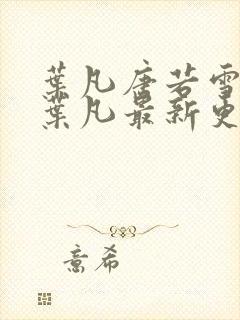 葉凡唐若雪
葉凡最新更
意希